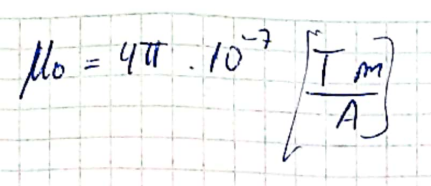 μ₀ = 4π · 10⁻⁷ [T m / A]